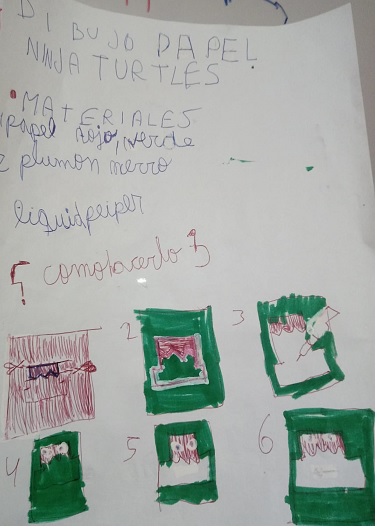 DIBUJO DAPEL
NINJA TURTLES
• MATERIALES
papel rojo, verde
2 plumon nerro
liquidpeiper
¿ comohacerlo ?
2 3
4 5 6